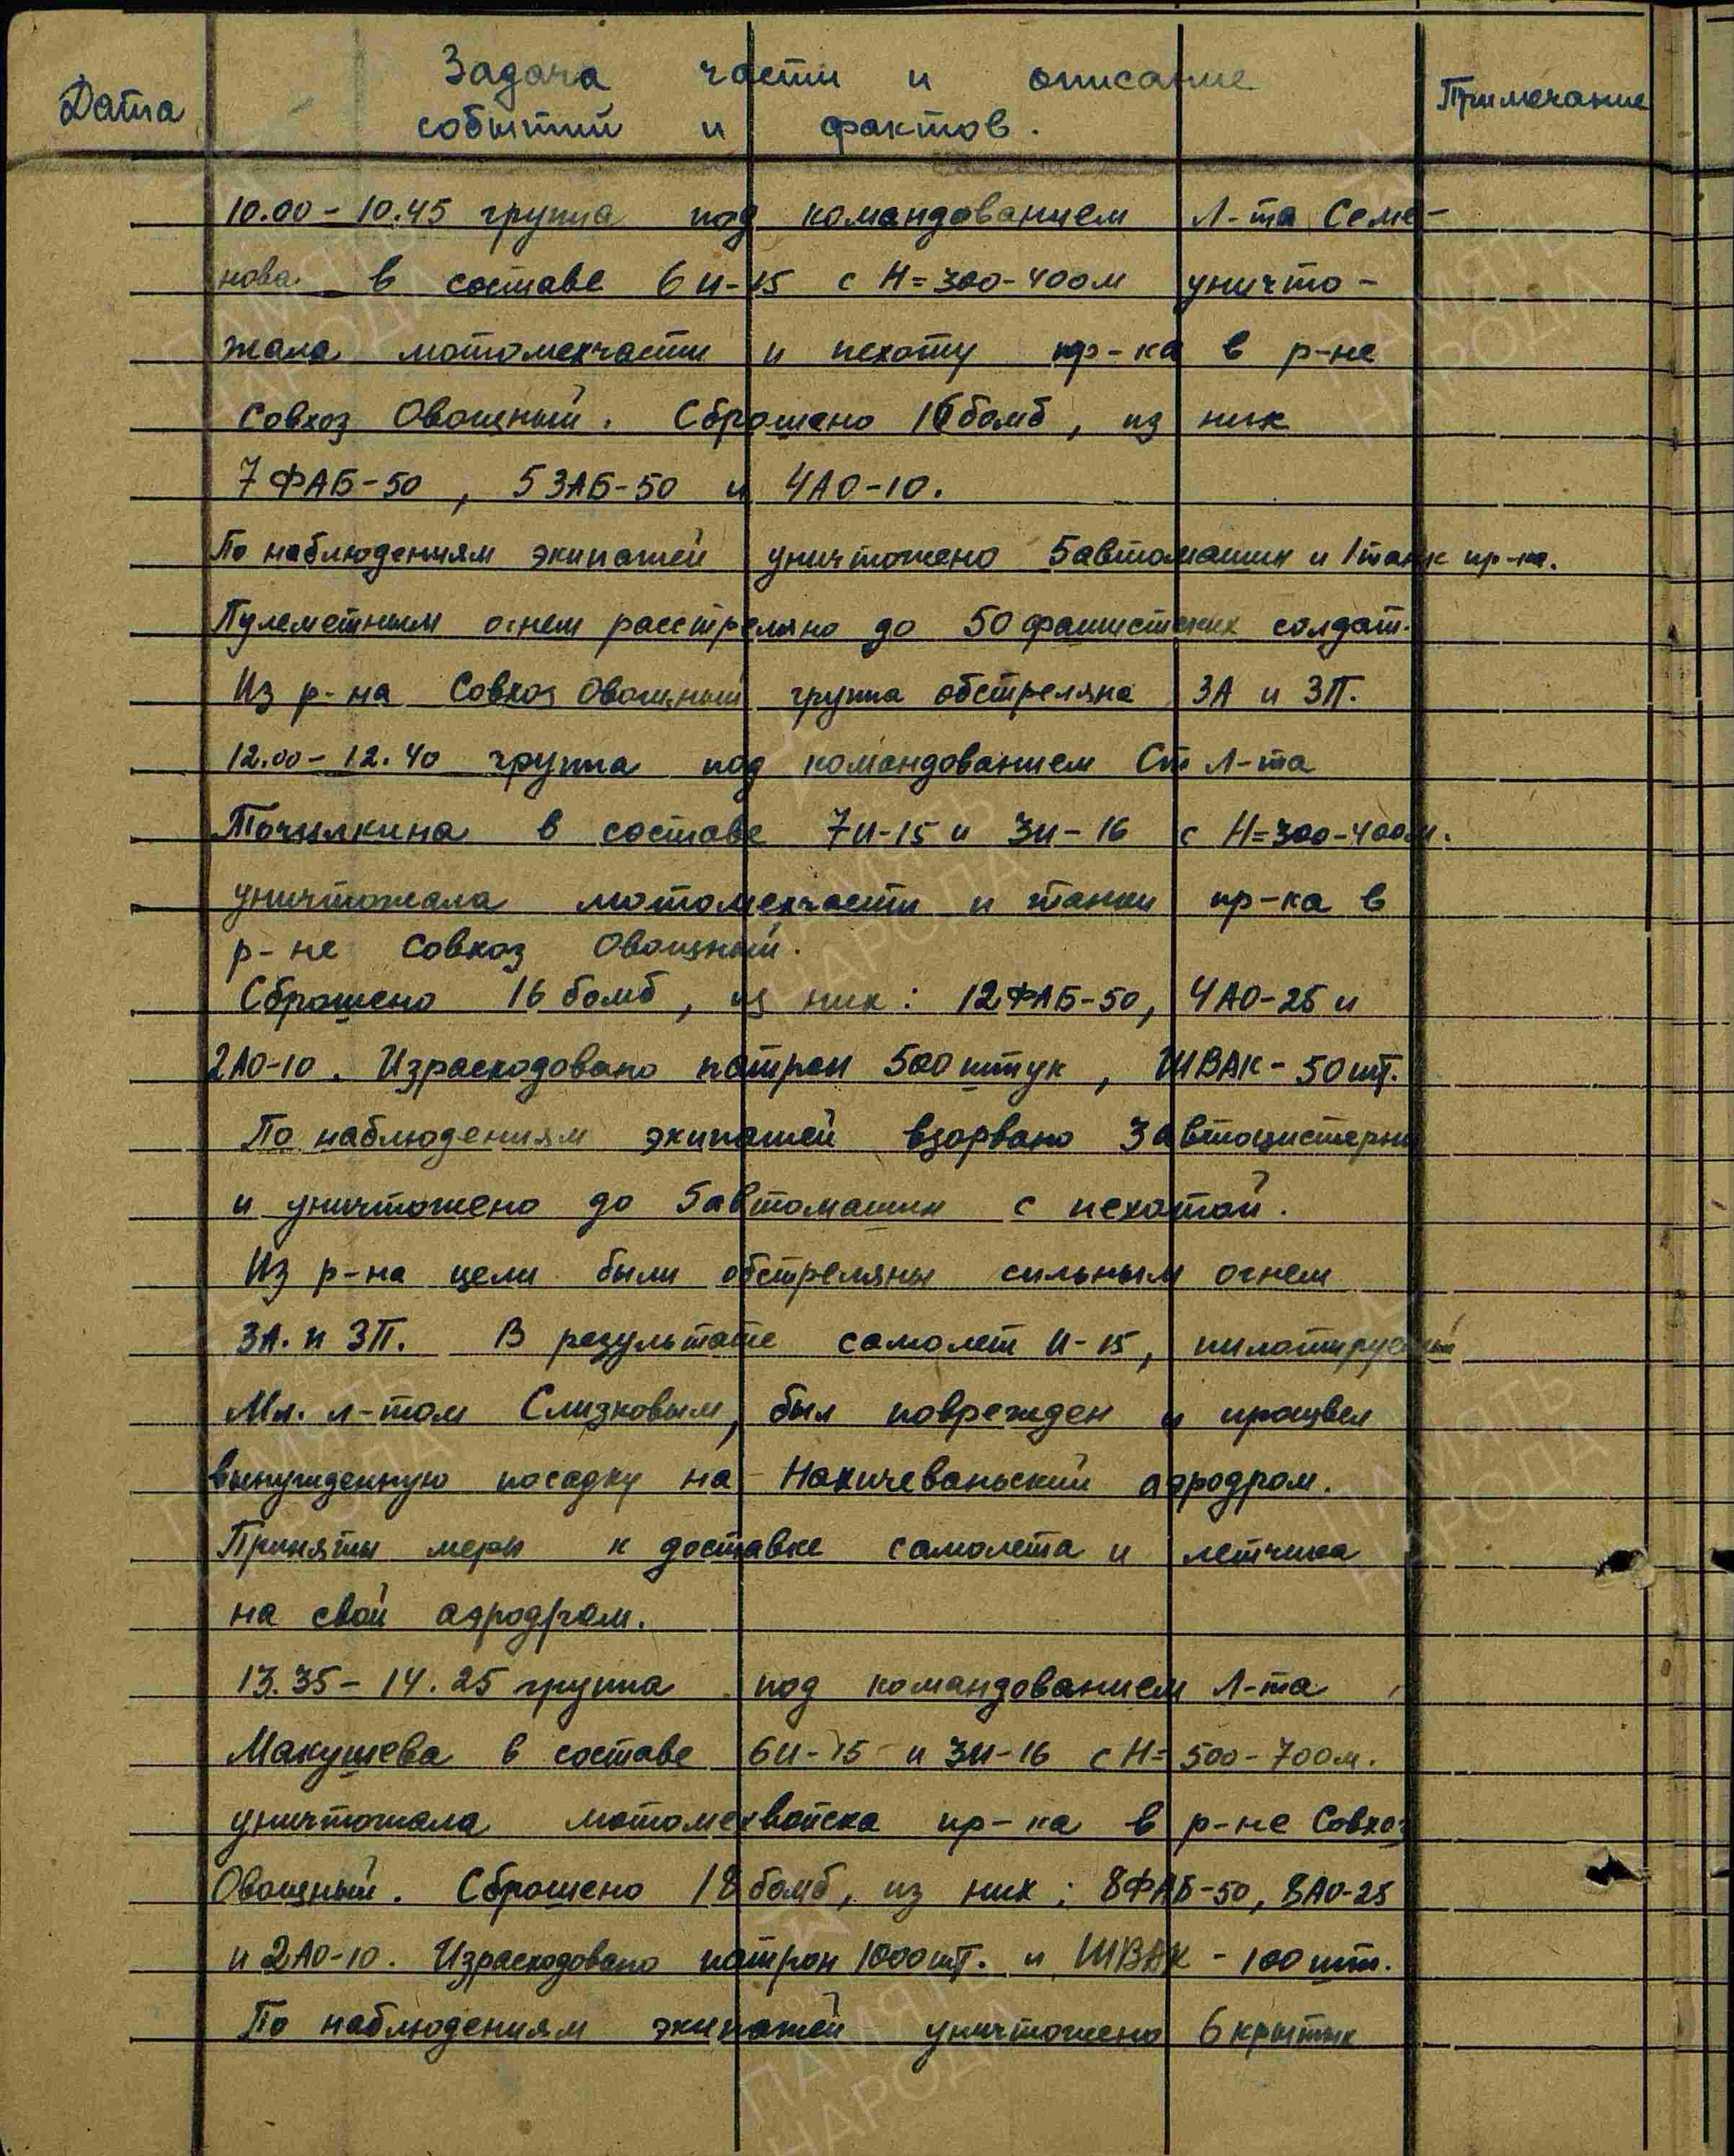 Дата
Задача части и описание
событий и фактов.
Примечание
10.00-10.45 группа под командованием Л-та Семе-
нова в составе 6 И-15 с Н=300-400м уничто-
жала мотомехчасти и пехоту пр-ка в р-не
Совхоз Овощный. Сброшено 16 бомб, из них
7 ФАБ-50, 5 ЗАБ-50 и 4 АО-10.
По наблюдениям экипажей уничтожено 5 автомашин и 1 танк пр-ка.
Пулеметным огнем расстреляно до 50 фашистских солдат.
Из р-на Совхоз Овощный группа обстреляна ЗА и ЗП.
12.00-12.40 группа под командованием Ст Л-та
Точилкина в составе 7 И-15 и 3 И-16 с Н=300-400м.
уничтожала мотомехчасти и танки пр-ка в
р-не Совхоз Овощный.
Сброшено 16 бомб, из них: 12 ФАБ-50, 4 АО-25 и
2 АО-10. Израсходовано патрон 500 штук, ШВАК-50 шт.
По наблюдениям экипажей взорвано 3 автоцистерны
и уничтожено до 5 автомашин с пехотой.
Из р-на цели были обстреляны сильным огнем
ЗА. и ЗП. В результате самолет И-15, пилотируемый
Мл. л-том Слизковым, был поврежден и произвел
вынужденную посадку на Нахичеваньский аэродром.
Приняты меры к доставке самолета и летчика
на свой аэродром.
13.35-14.25 группа под командованием Л-та
Макушева в составе 6 И-15 и 3 И-16 с Н=500-700м.
уничтожала мотомехвойска пр-ка в р-не Совхоз
Овощный. Сброшено 18 бомб, из них: 8 ФАБ-50, 8 АО-25
и 2 АО-10. Израсходовано патрон 1000 шт. и ШВАК - 100 шт.
По наблюдениям экипажей уничтожено 6 крытых